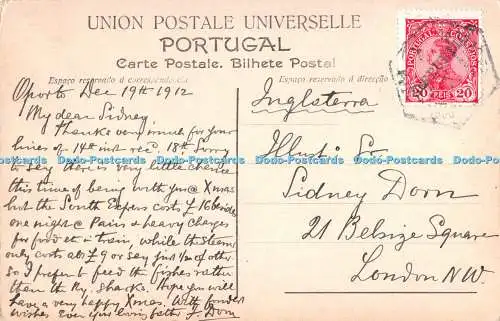 UNION POSTALE UNIVERSELLE
PORTUGAL
Carte Postale. Bilhete Postal
Espaço reservado á correspondencia
Espaço reservado á direcção
PORTUGAL CORREIOS
REPUBLICA
20 REIS 20
Oporto Dec 19th 1912
My dear Sidney,
Thanks very much for your
lines of 14th inst recd. 18th. Sorry
to say there is very little chance
this time of being with you @ Xmas
but the South Express costs £16 besides
one night @ Paris & heavy charges
for food en train, while the steamer
only costs abt £9 or say just 1/2 of other
so I prefer to feed the fishes rather
than the Ry. Sharks. Hope you will
have a very happy Xmas. With fondest
wishes Ever your loving father J. Dorn
Inglaterra
Illustº Sr
Sidney Dorn
21 Belsize Square
London N.W.
Dodo-Postcards Dodo-Postcards Dodo-Postcards Dodo-Postcards Dodo-Postcards